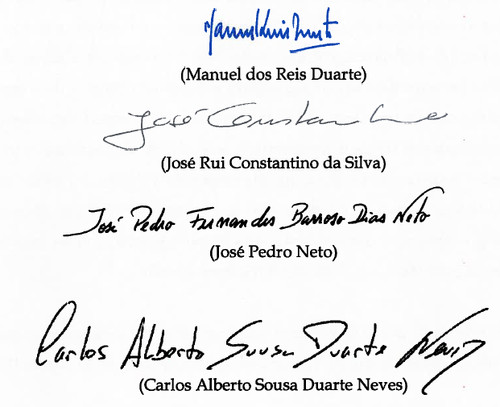 Manuel Duarte
(Manuel dos Reis Duarte)
José Constantino
(José Rui Constantino da Silva)
José Pedro Fernandes Barroso Dias Neto
(José Pedro Neto)
Carlos Alberto Sousa Duarte Neves
(Carlos Alberto Sousa Duarte Neves)